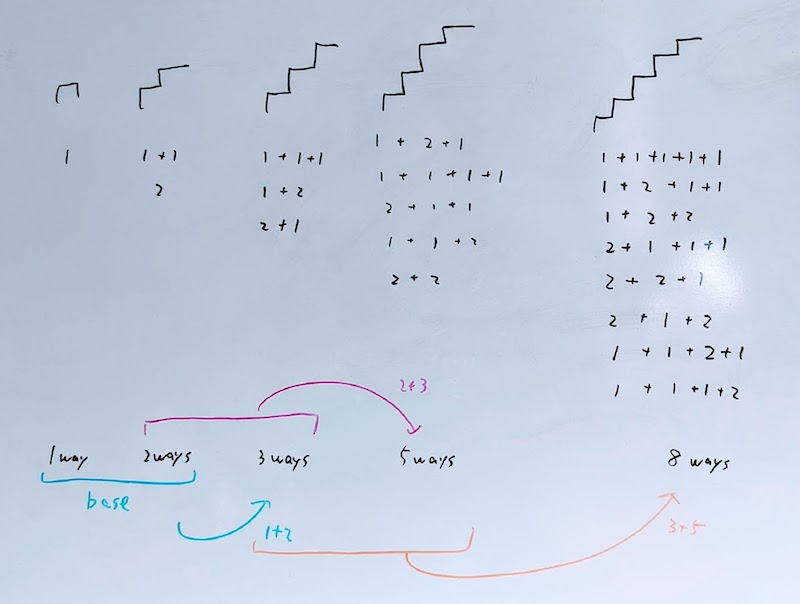 1
1 + 1
2
1 + 1 + 1
1 + 2
2 + 1
1 + 2 + 1
1 + 1 + 1 + 1
2 + 1 + 1
1 + 1 + 2
2 + 2
1 + 1 + 1 + 1 + 1
1 + 2 + 1 + 1
1 + 2 + 2
2 + 1 + 1 + 1
2 + 2 + 1
2 + 1 + 2
1 + 1 + 2 + 1
1 + 1 + 1 + 2
2+3
1 way 2 ways 3 ways 5 ways 8 ways
base
1+2
3+5